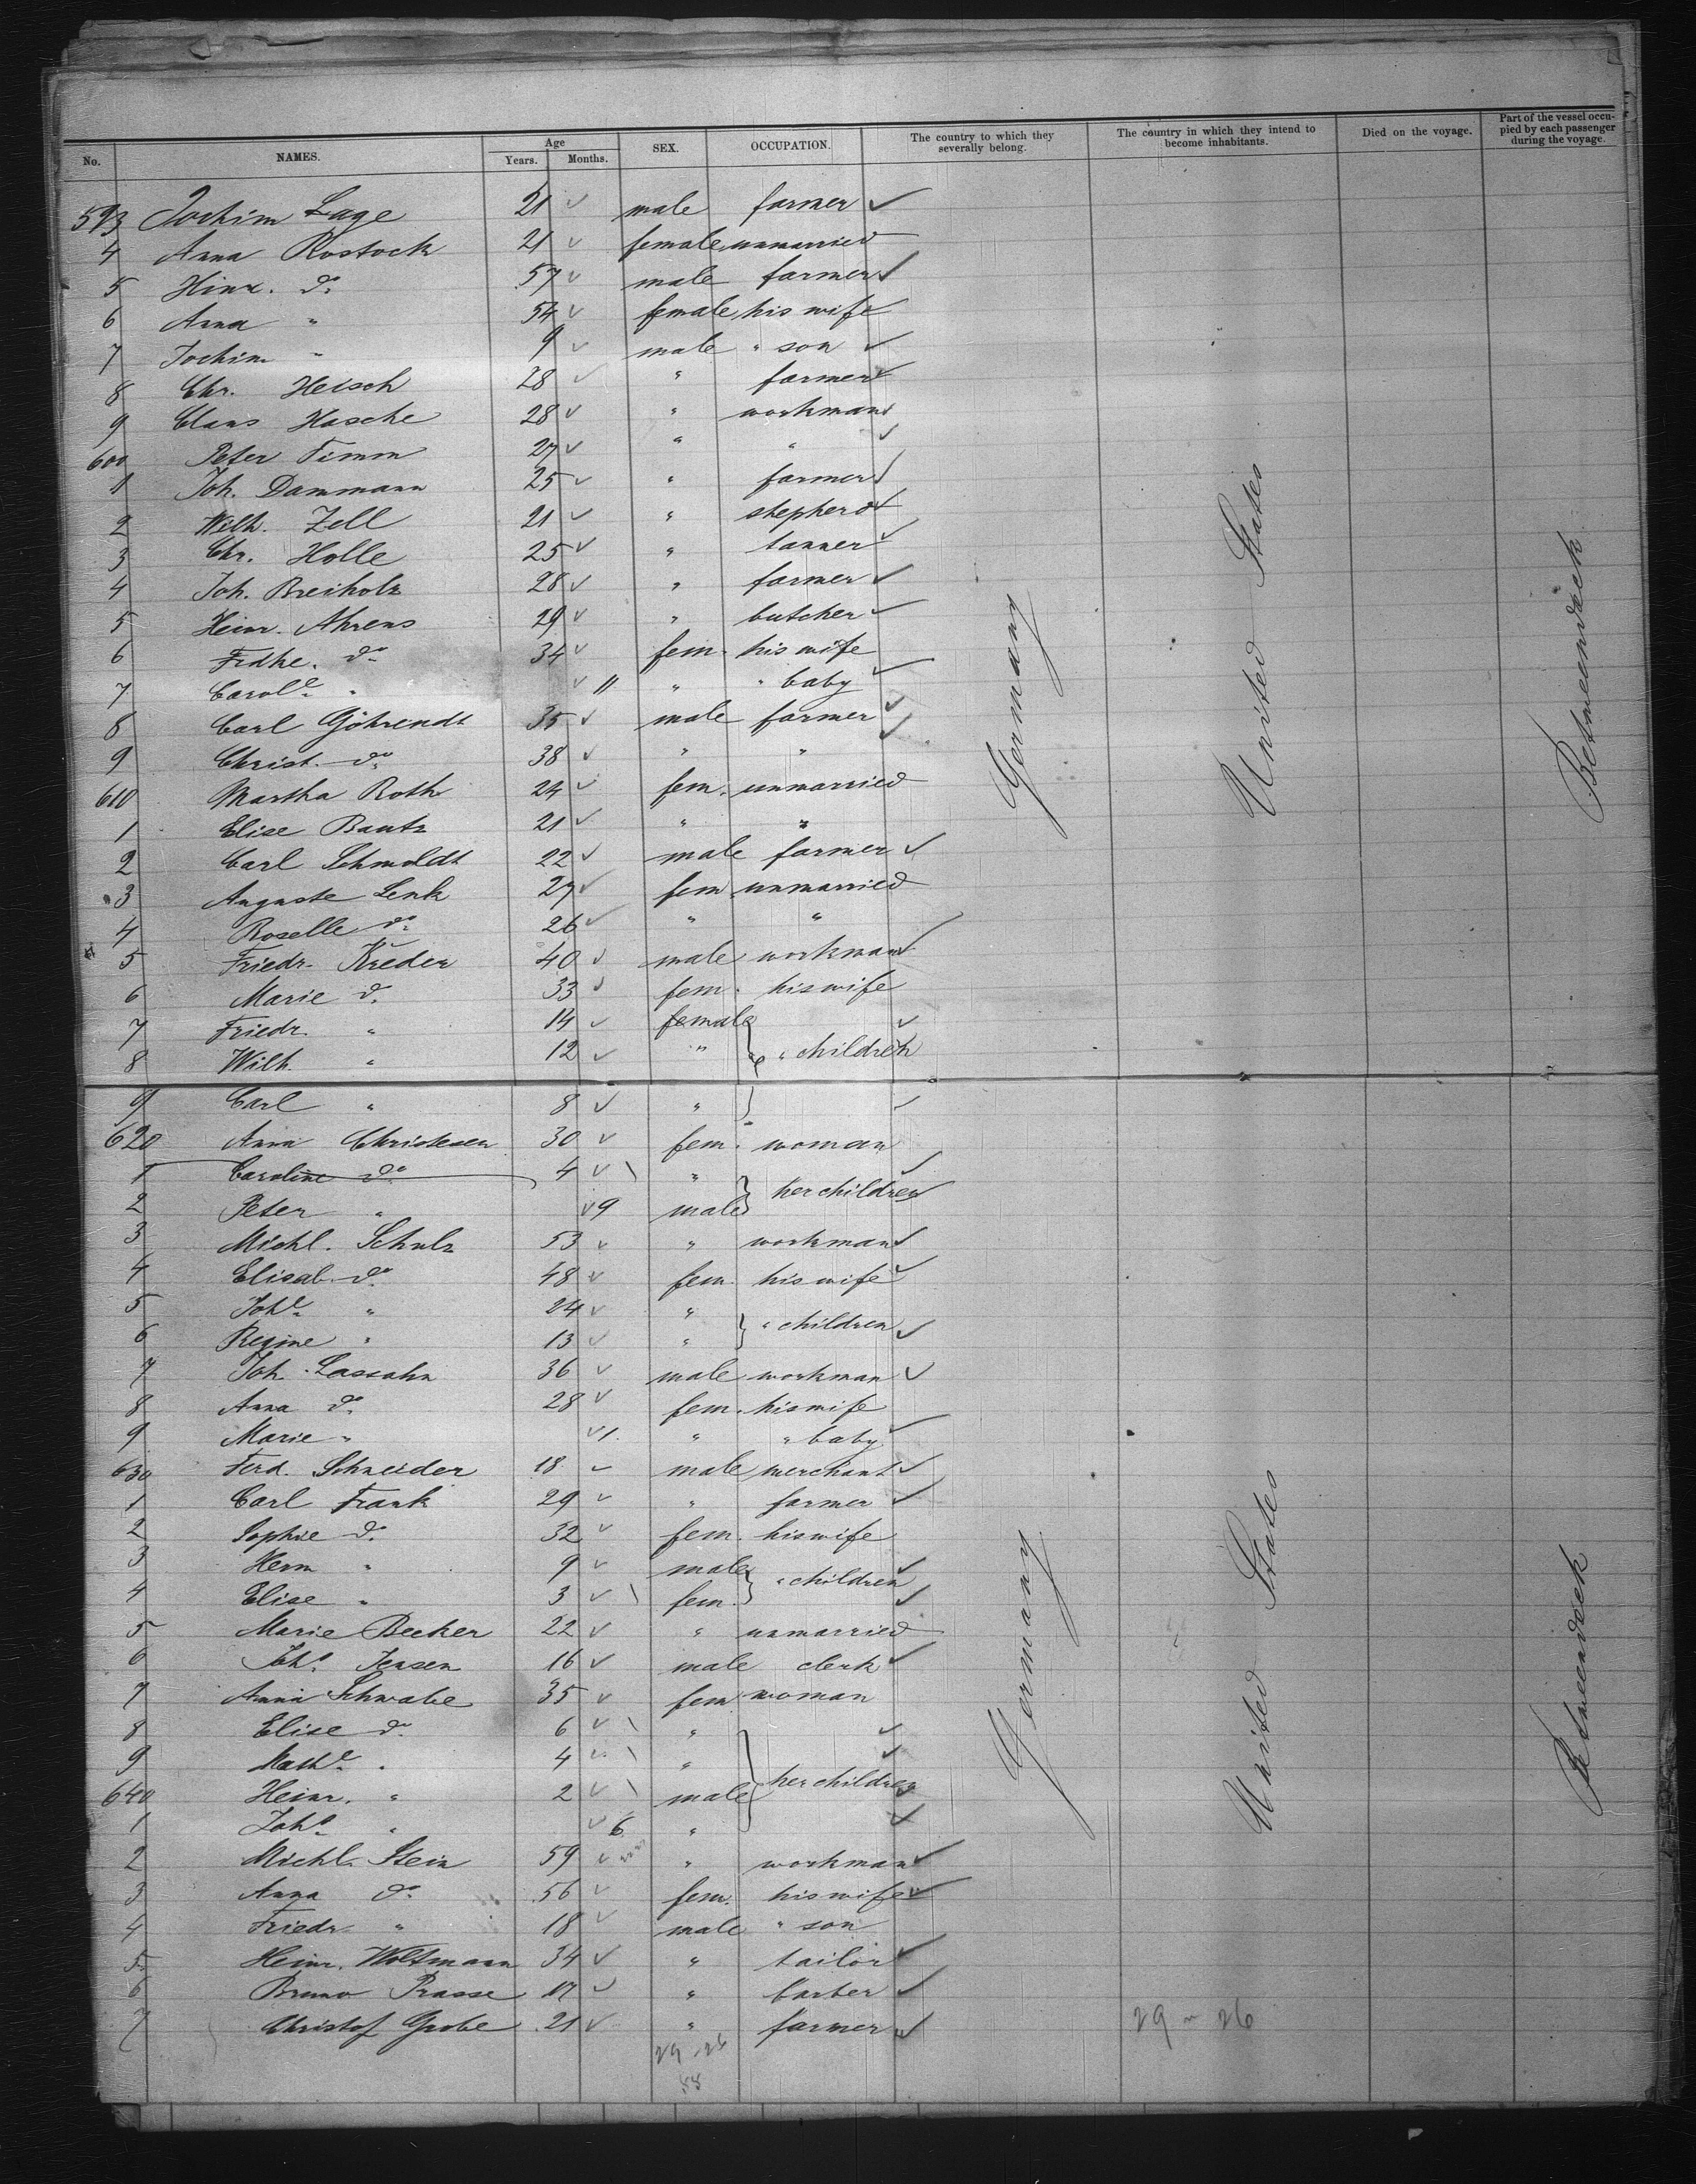 No. NAMES. Age Years. Months. SEX. OCCUPATION. The country to which they severally belong. The country in which they intend to become inhabitants. Died on the voyage. Part of the vessel occupied by each passenger during the voyage.
593 Jochim Lage 21 male farmer
4 Anna Rostock 21 female unmarried
5 Hinr. do 57 male farmer
6 Anna " 54 female his wife
7 Jochim " 9 male " son
8 Chr. Heisch 28 " farmer
9 Claus Hasche 28 " workman
600 Peter Timm 27 " "
1 Joh. Dammann 25 " farmer
2 Wilh. Zell 21 " shepherd
3 Chr. Holle 25 " tanner
4 Joh. Breiholz 28 " farmer
5 Heinr. Ahrens 29 " butcher
6 Fridke. do 34 fem. his wife
7 Carole " 11 " " baby
8 Carl Göhrendt 35 male farmer
9 Christ. do 38 " "
610 Martha Roth 24 fem. unmarried
1 Elise Bantz 21 " "
2 Carl Schmoldt 22 male farmer
3 Auguste Lenk 27 fem unmarried
4 Roselle do 26 " "
5 Friedr. Kreder 40 male workman
6 Marie do 33 fem. his wife
7 Friedr. " 14 female
8 Wilh. " 12 " " children
9 Carl " 8 "
620 Anna Christesen 30 fem. woman
1 Caroline do 4 "
2 Peter " 9 male her children
3 Michl. Schulz 53 " workman
4 Elisab. do 48 fem. his wife
5 Johe " 24 "
6 Regine " 13 " " children
7 Joh. Lassahn 36 male workman
8 Anna do 28 fem. his wife
9 Marie " 1 " " baby
630 Ferd. Schneider 18 male merchant
1 Carl Frank 29 " farmer
2 Sophie do 32 fem. his wife
3 Herm " 9 male " children
4 Elise " 3 fem.
5 Marie Becker 22 " unmarried
6 Johs Jensen 16 male clerk
7 Anna Schwabe 35 fem woman
8 Elise do 6 "
9 Mathe " 4 "
640 Heinr. " 2 male her children
1 Johs " 6 "
2 Michl. Stein 59 " workman
3 Anna do 56 fem. his wife
4 Friedr. " 18 male " son
5 Heinr. Woltmann 34 " tailor
6 Bruno Prasse 17 " barber
7 Christof Grobe 21 " farmer
29 26
55
29 26
Germany
United States
Betweendeck
Germany
United States
Betweendeck